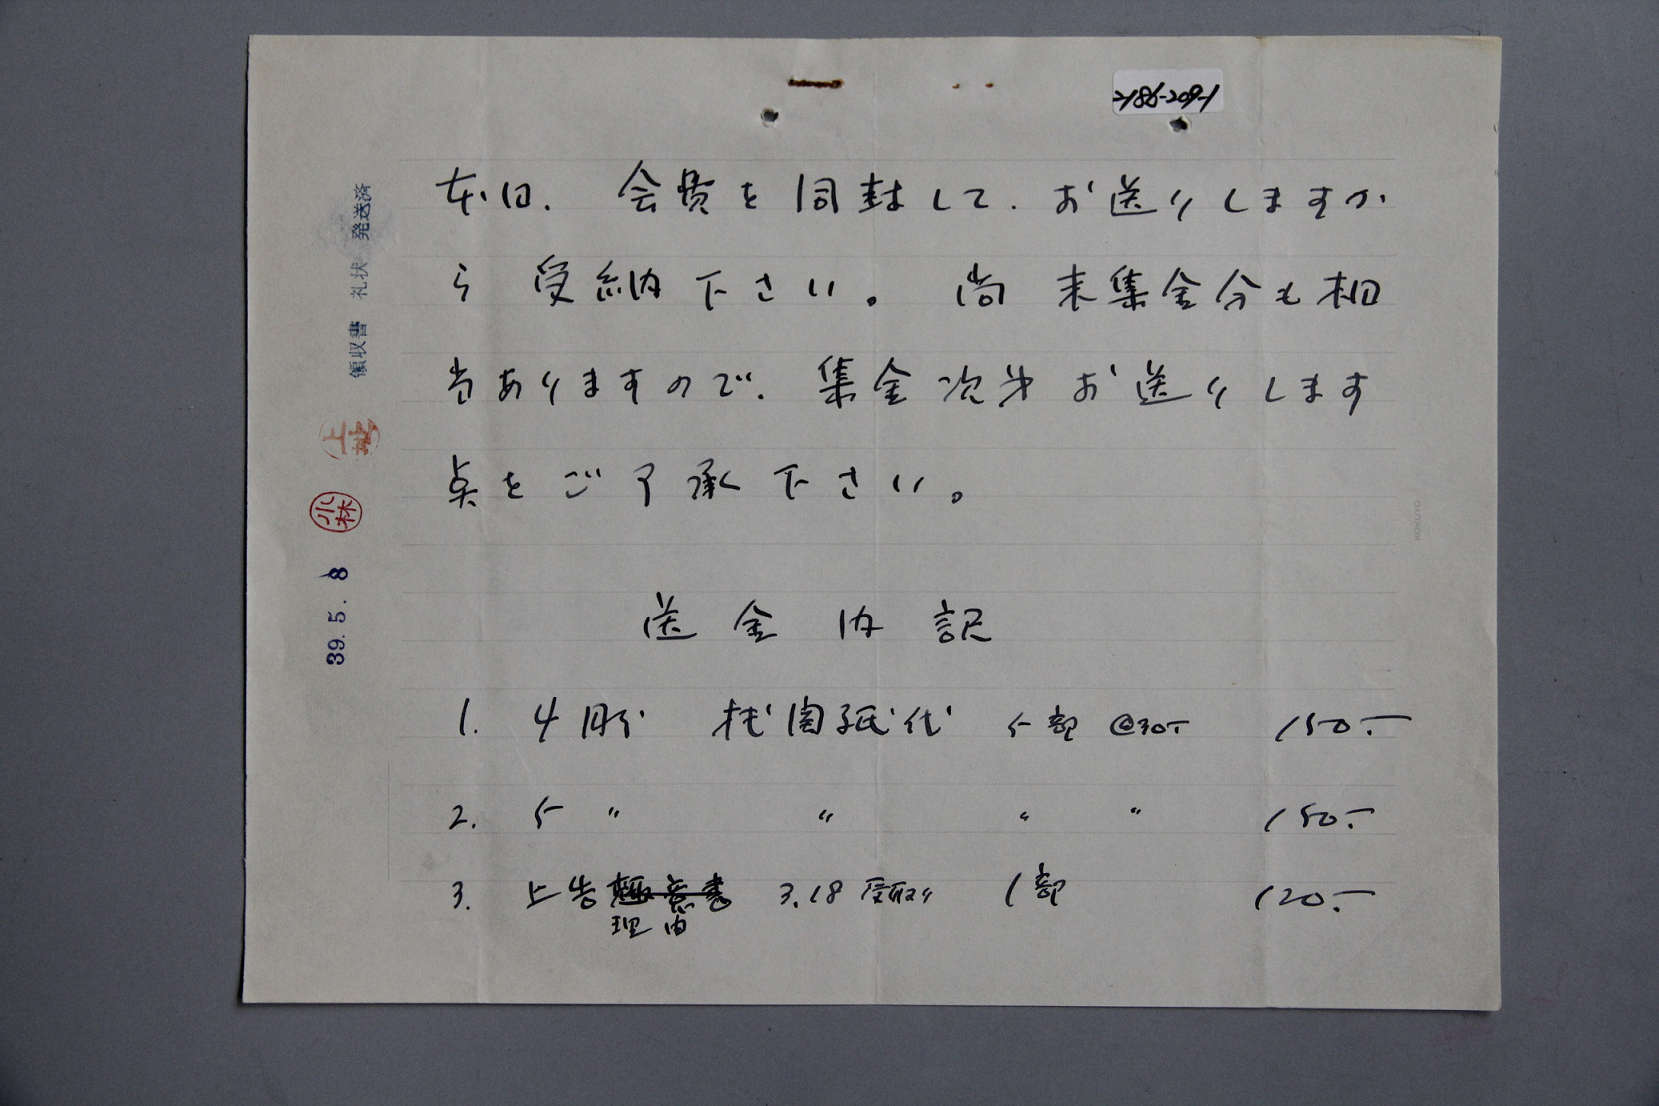 2-186-209-1
本日、会費を同封して、お送りしますか
ら受納下さい。尚 未集金分も相
当ありますので、集金次第お送りします
点をご了承下さい。
送金内訳
1. 4月分 機関紙代 5部 @30- 150.-
2. 5 〃 〃 〃 〃 150.-
3. 上告趣意書 3.18受取分 1部 120.-
理由
領収書 礼状 発送済
上野
小林
39.5.8
KOKUYO